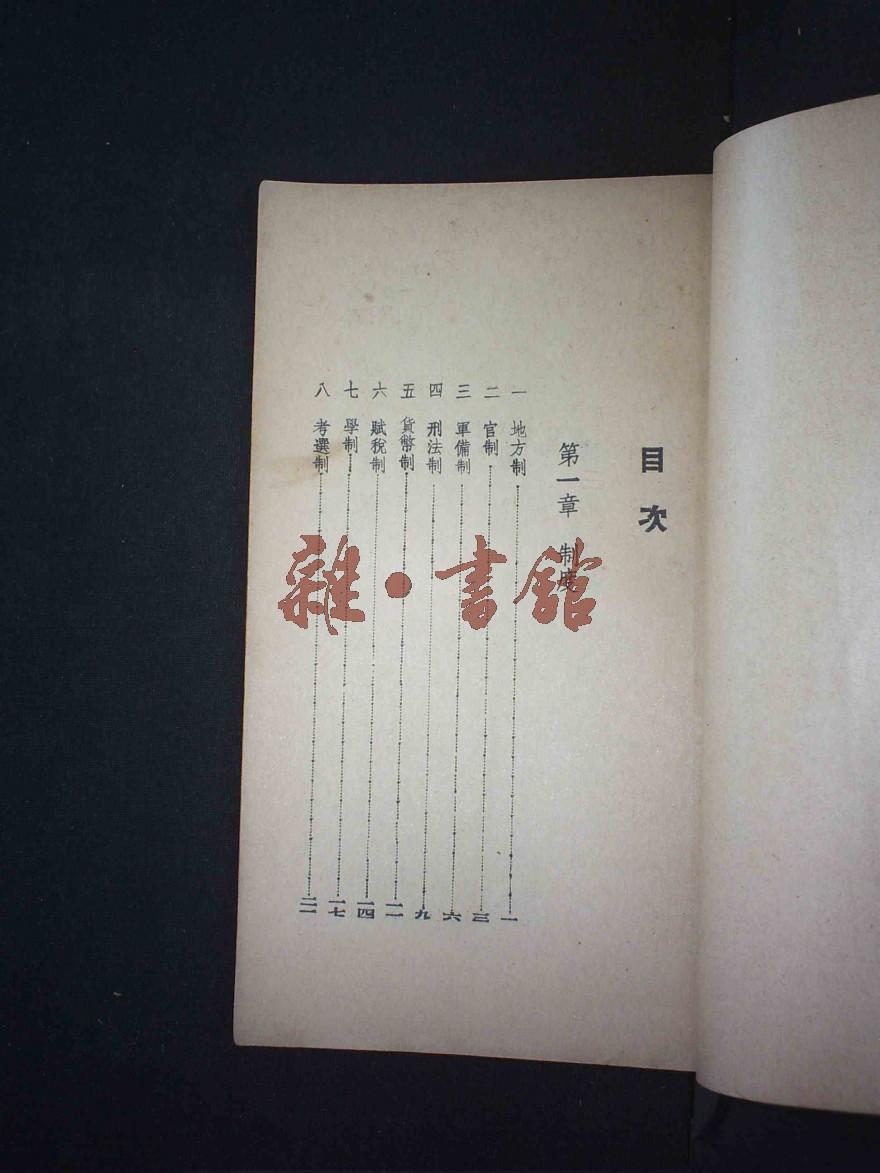 目次
第一章 制度
一 地方制 一
二 官制 三
三 軍備制 六
四 刑法制 九
五 貨幣制 一一
六 賦稅制 一四
七 學制 一七
八 考選制 二一
雜·書館